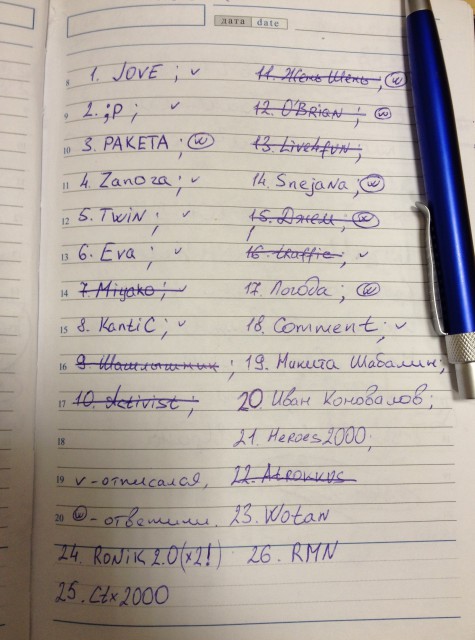 дата date
8 1. JOVE ; v 11. Жень Шень ; w
9 2. ;P ; v 12. O'BRian ; w
10 3. РАКЕТА ; w 13. Live4fun ;
11 4. Zanoza ; v 14. Snejana ; w
12 5. Twin ; v 15. Джем ; w
13 6. Eva ; v 16. traffic ; v
14 7. Miyako ; v 17. Погода ; w
15 8. KantiC ; v 18. Comment ; v
16 9. Шашлышник ; 19. Микита Шабалин ;
17 10. Activist ; 20 Иван Коновалов ;
18 21. Heroes2000 ;
19 v - отписался, 22.
20 w - ответили. 23. Wotan
24. RoNiK 2.0 (x2!) 26. RMN
25. Ctx2000